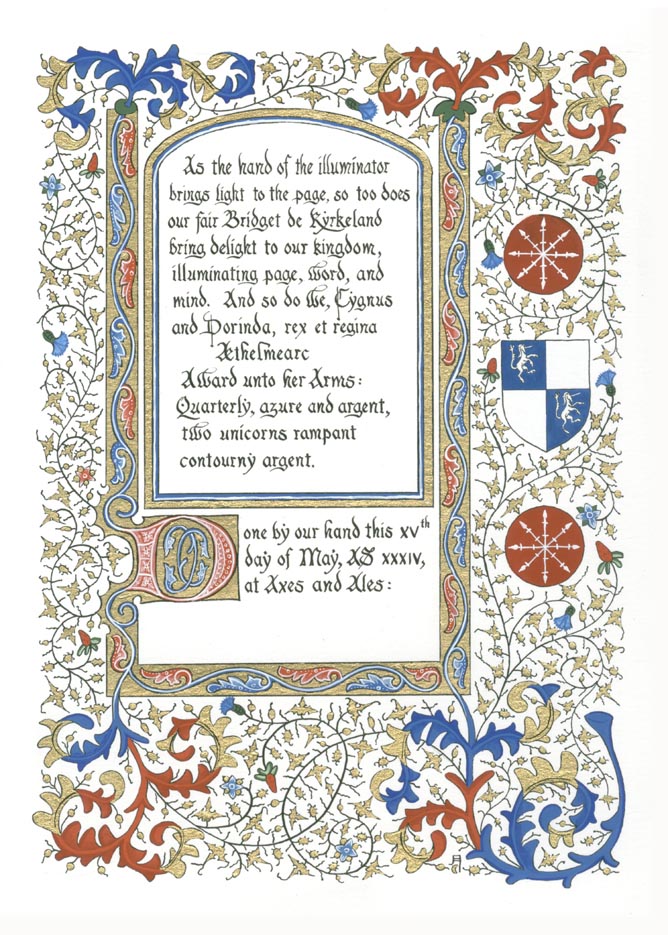 As the hand of the illuminator
brings light to the page, so too does
our fair Bridget de Kyrkeland
bring delight to our kingdom,
illuminating page, word, and
mind. And so do we, Cygnus
and Dorinda, rex et regina
Æthelmearc
Award unto her Arms:
Quarterly, azure and argent,
two unicorns rampant
contourny argent.
Done by our hand this xvth
day of May, AS xxxiv,
at Axes and Ales: